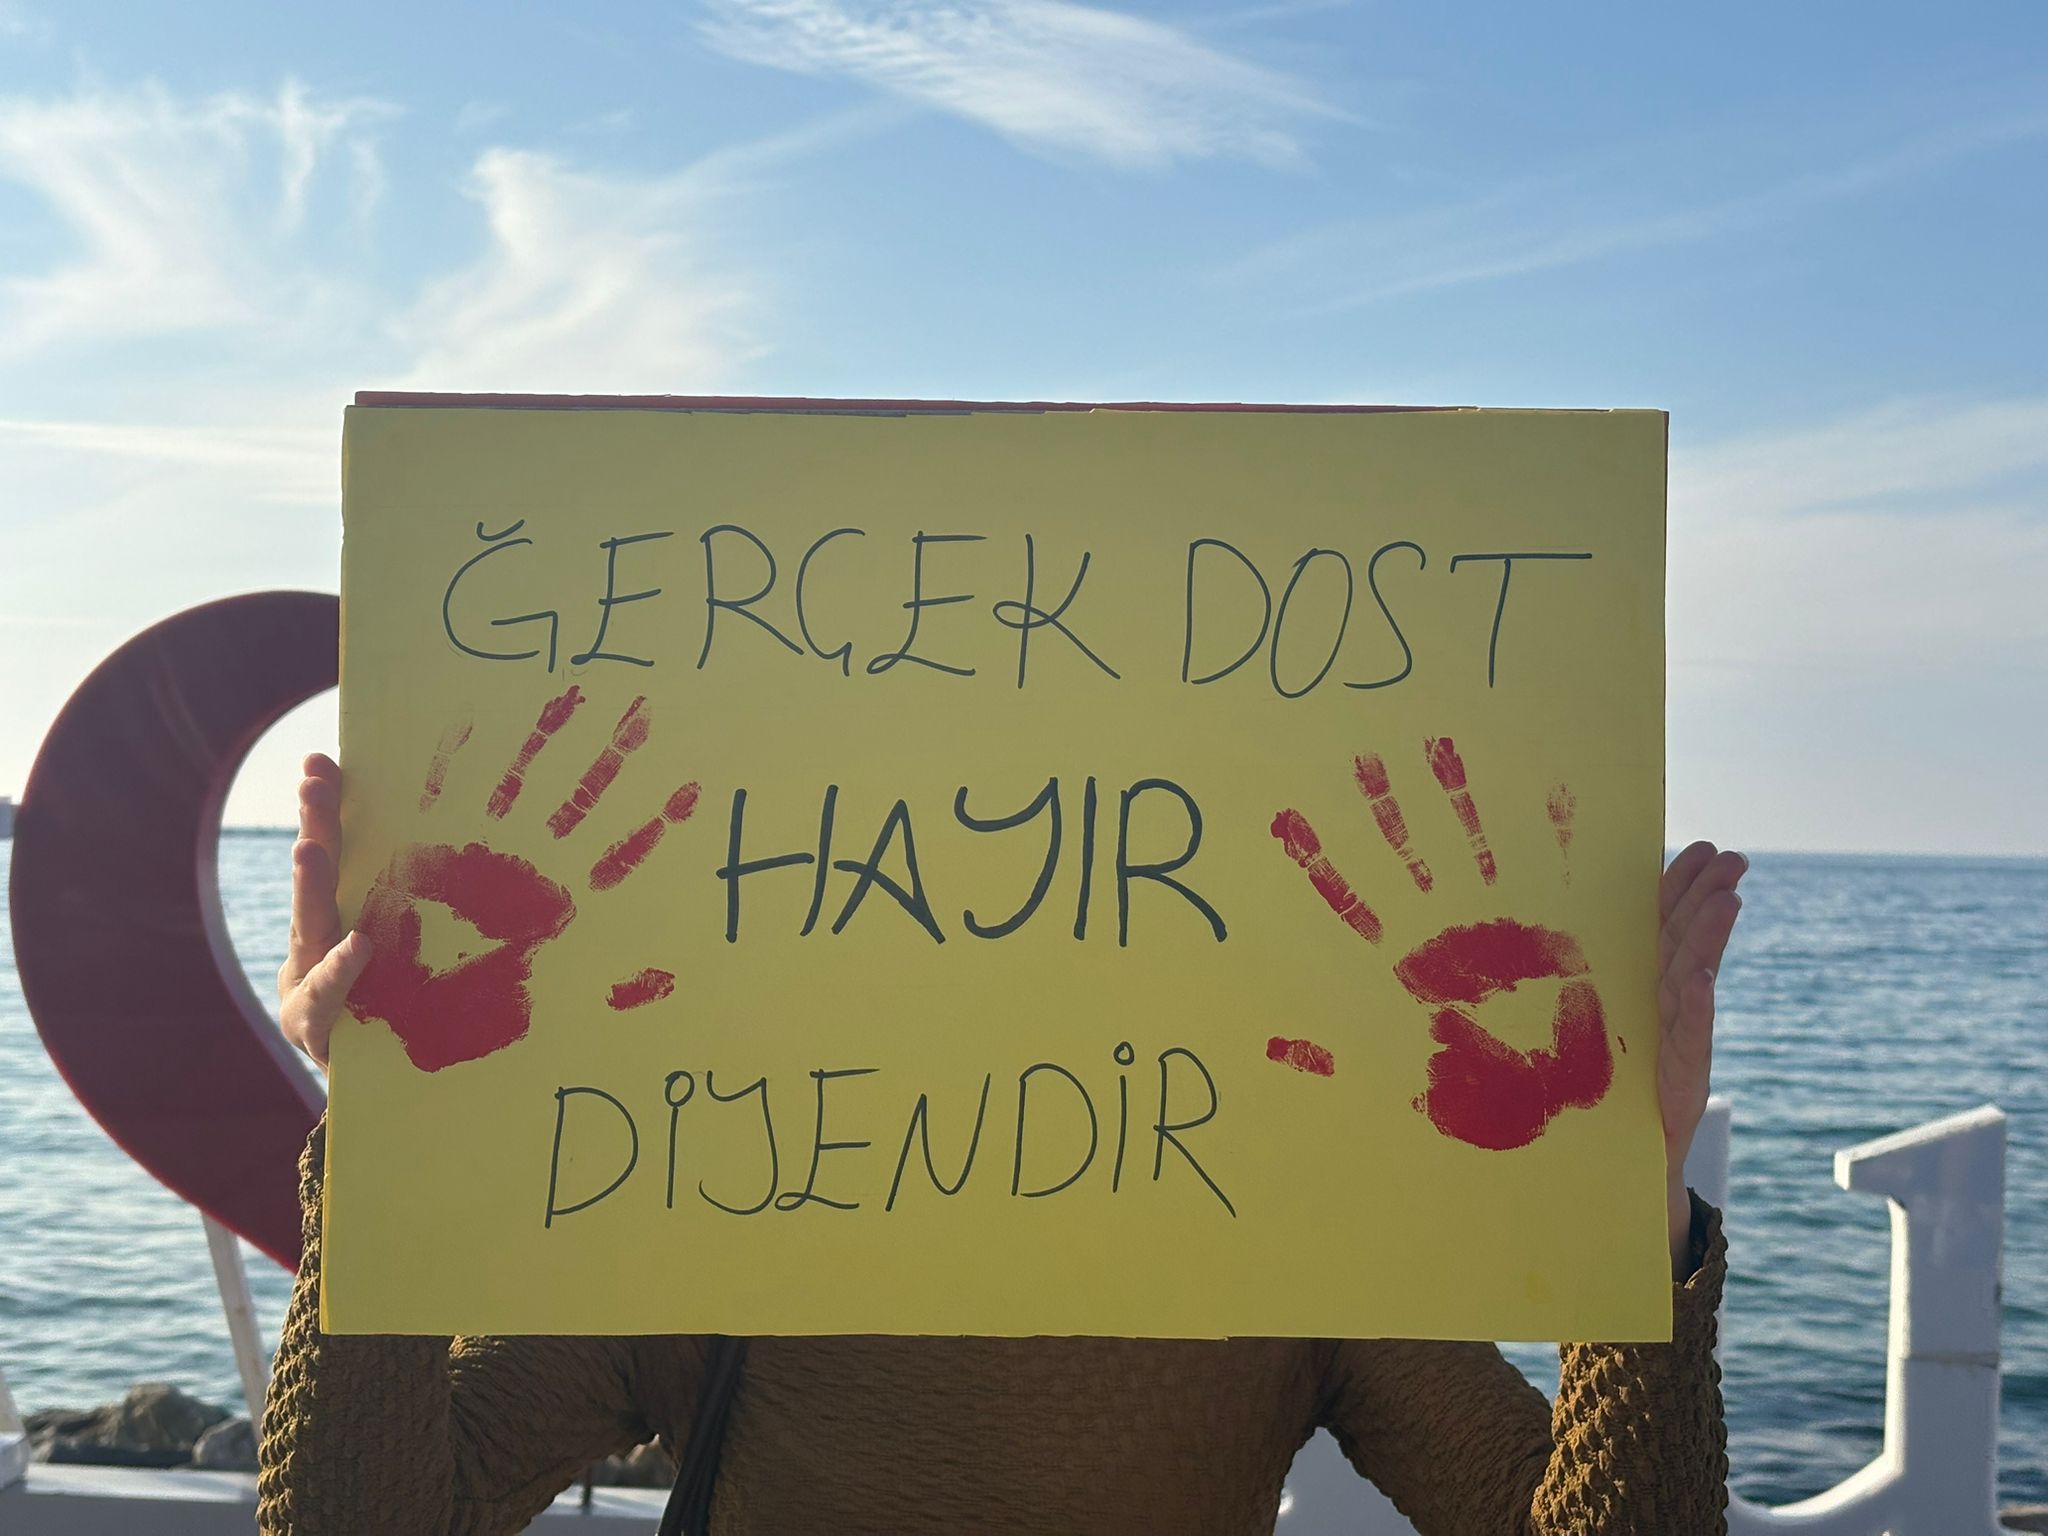 ĞERÇEK DOST
HAYIR
DİYENDİR